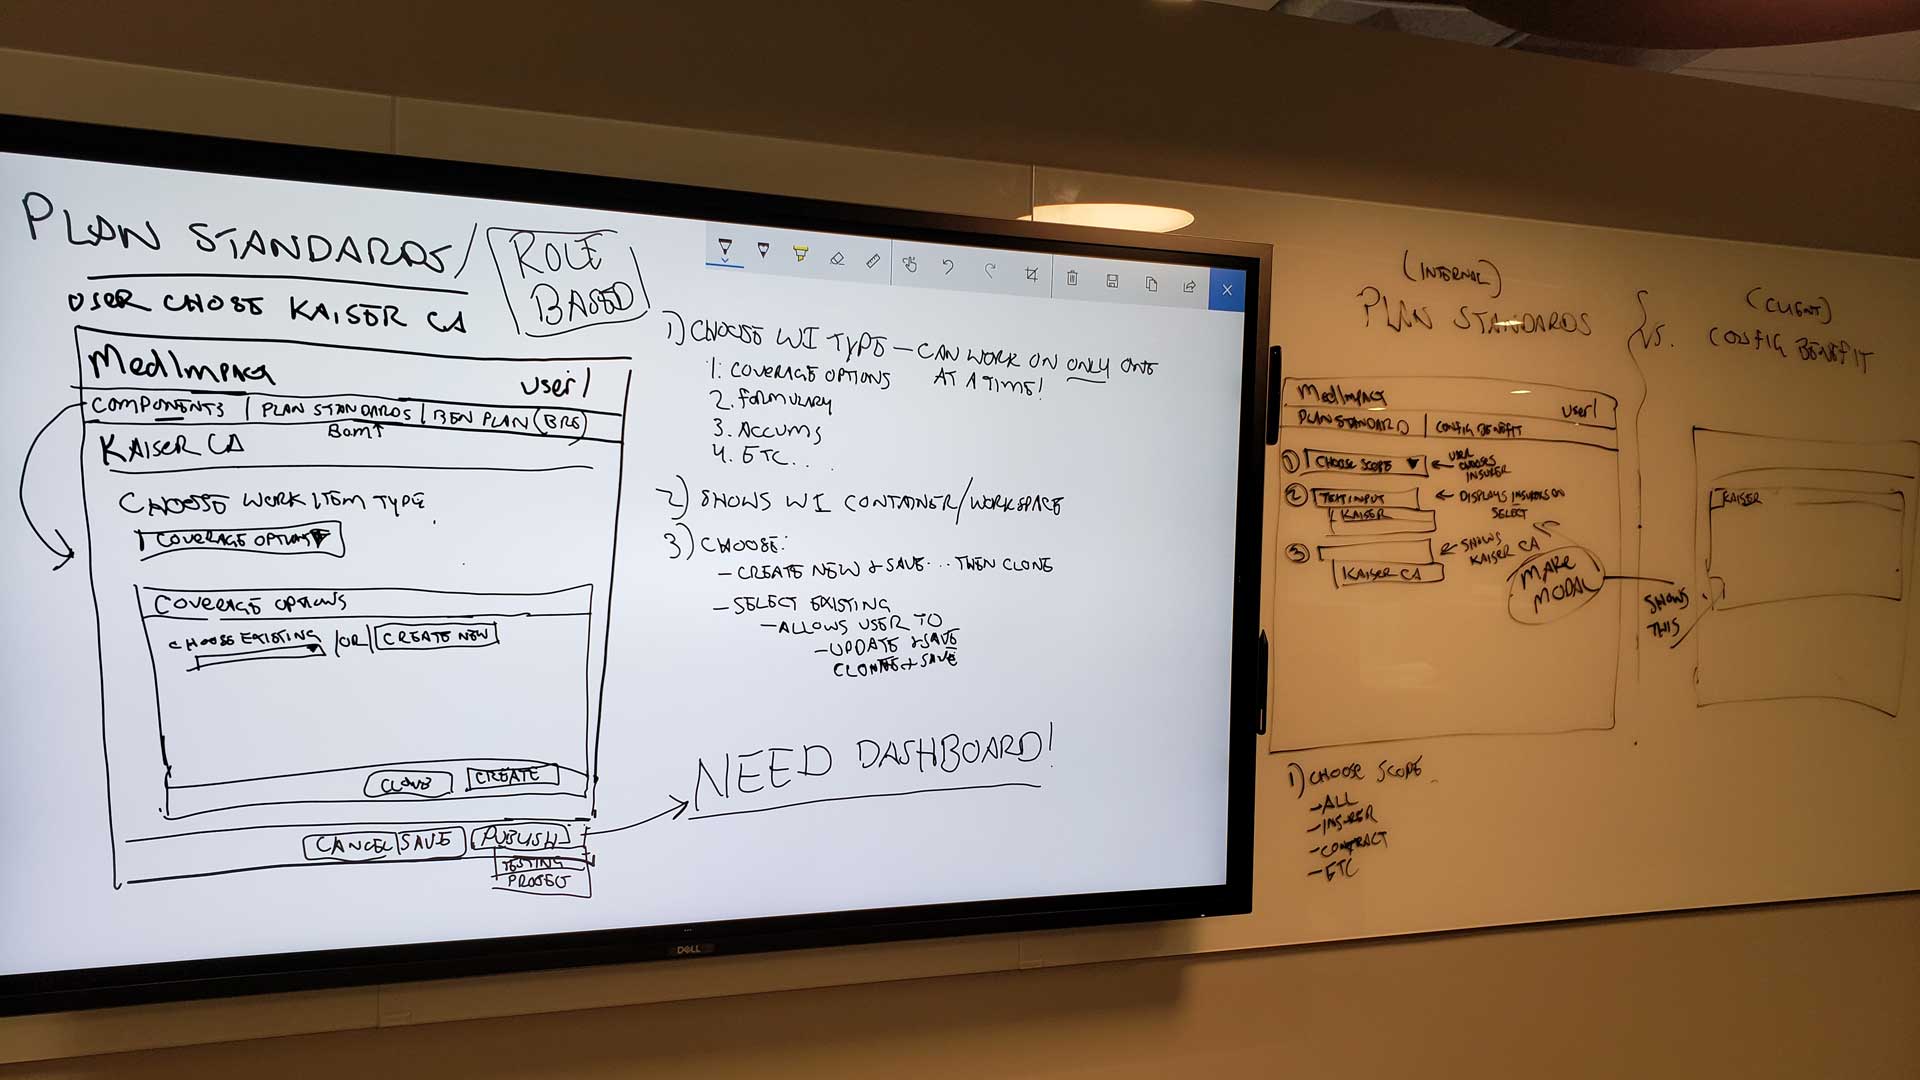 PLAN STANDARDS/
ROLE
BASED
USER CHOSE KAISER CA
MedImpact
user1
COMPONENTS | PLAN STANDARDS | BEN PLAN (BRE)
KAISER CA
CHOOSE WORK ITEM TYPE
COVERAGE OPTIONS
COVERAGE OPTIONS
CHOOSE EXISTING /OR/ CREATE NEW
CLONE
CREATE
CANCEL
SAVE
PUBLISH
TESTING
PROJECT
1) CHOOSE WI TYPE – CAN WORK ON ONLY ONE
AT A TIME!
1. COVERAGE OPTIONS
2. FORMULARY
3. ACCUMS
4. ETC...
2) SHOWS WI CONTAINER/WORKSPACE
3) CHOOSE:
– CREATE NEW & SAVE... THEN CLONE
– SELECT EXISTING
– ALLOWS USER TO
– UPDATE & SAVE
CLONE & SAVE
NEED DASHBOARD!
DELL
(INTERNAL)
PLAN STANDARDS
VS.
(CLIENT)
CONFIG BENEFIT
MedImpact
user1
PLAN STANDARD | CONFIG BENEFIT
1 CHOOSE SCOPE ← USER
CHOOSES
INSURER
2 TEXT INPUT ← DISPLAYS INSURERS ON
SELECT
KAISER
3 ← SHOWS
KAISER CA
KAISER CA
MAKE
MODAL
SHOWS
THIS
KAISER
1) CHOOSE SCOPE
– ALL
– INSURER
– CONTRACT
– ETC